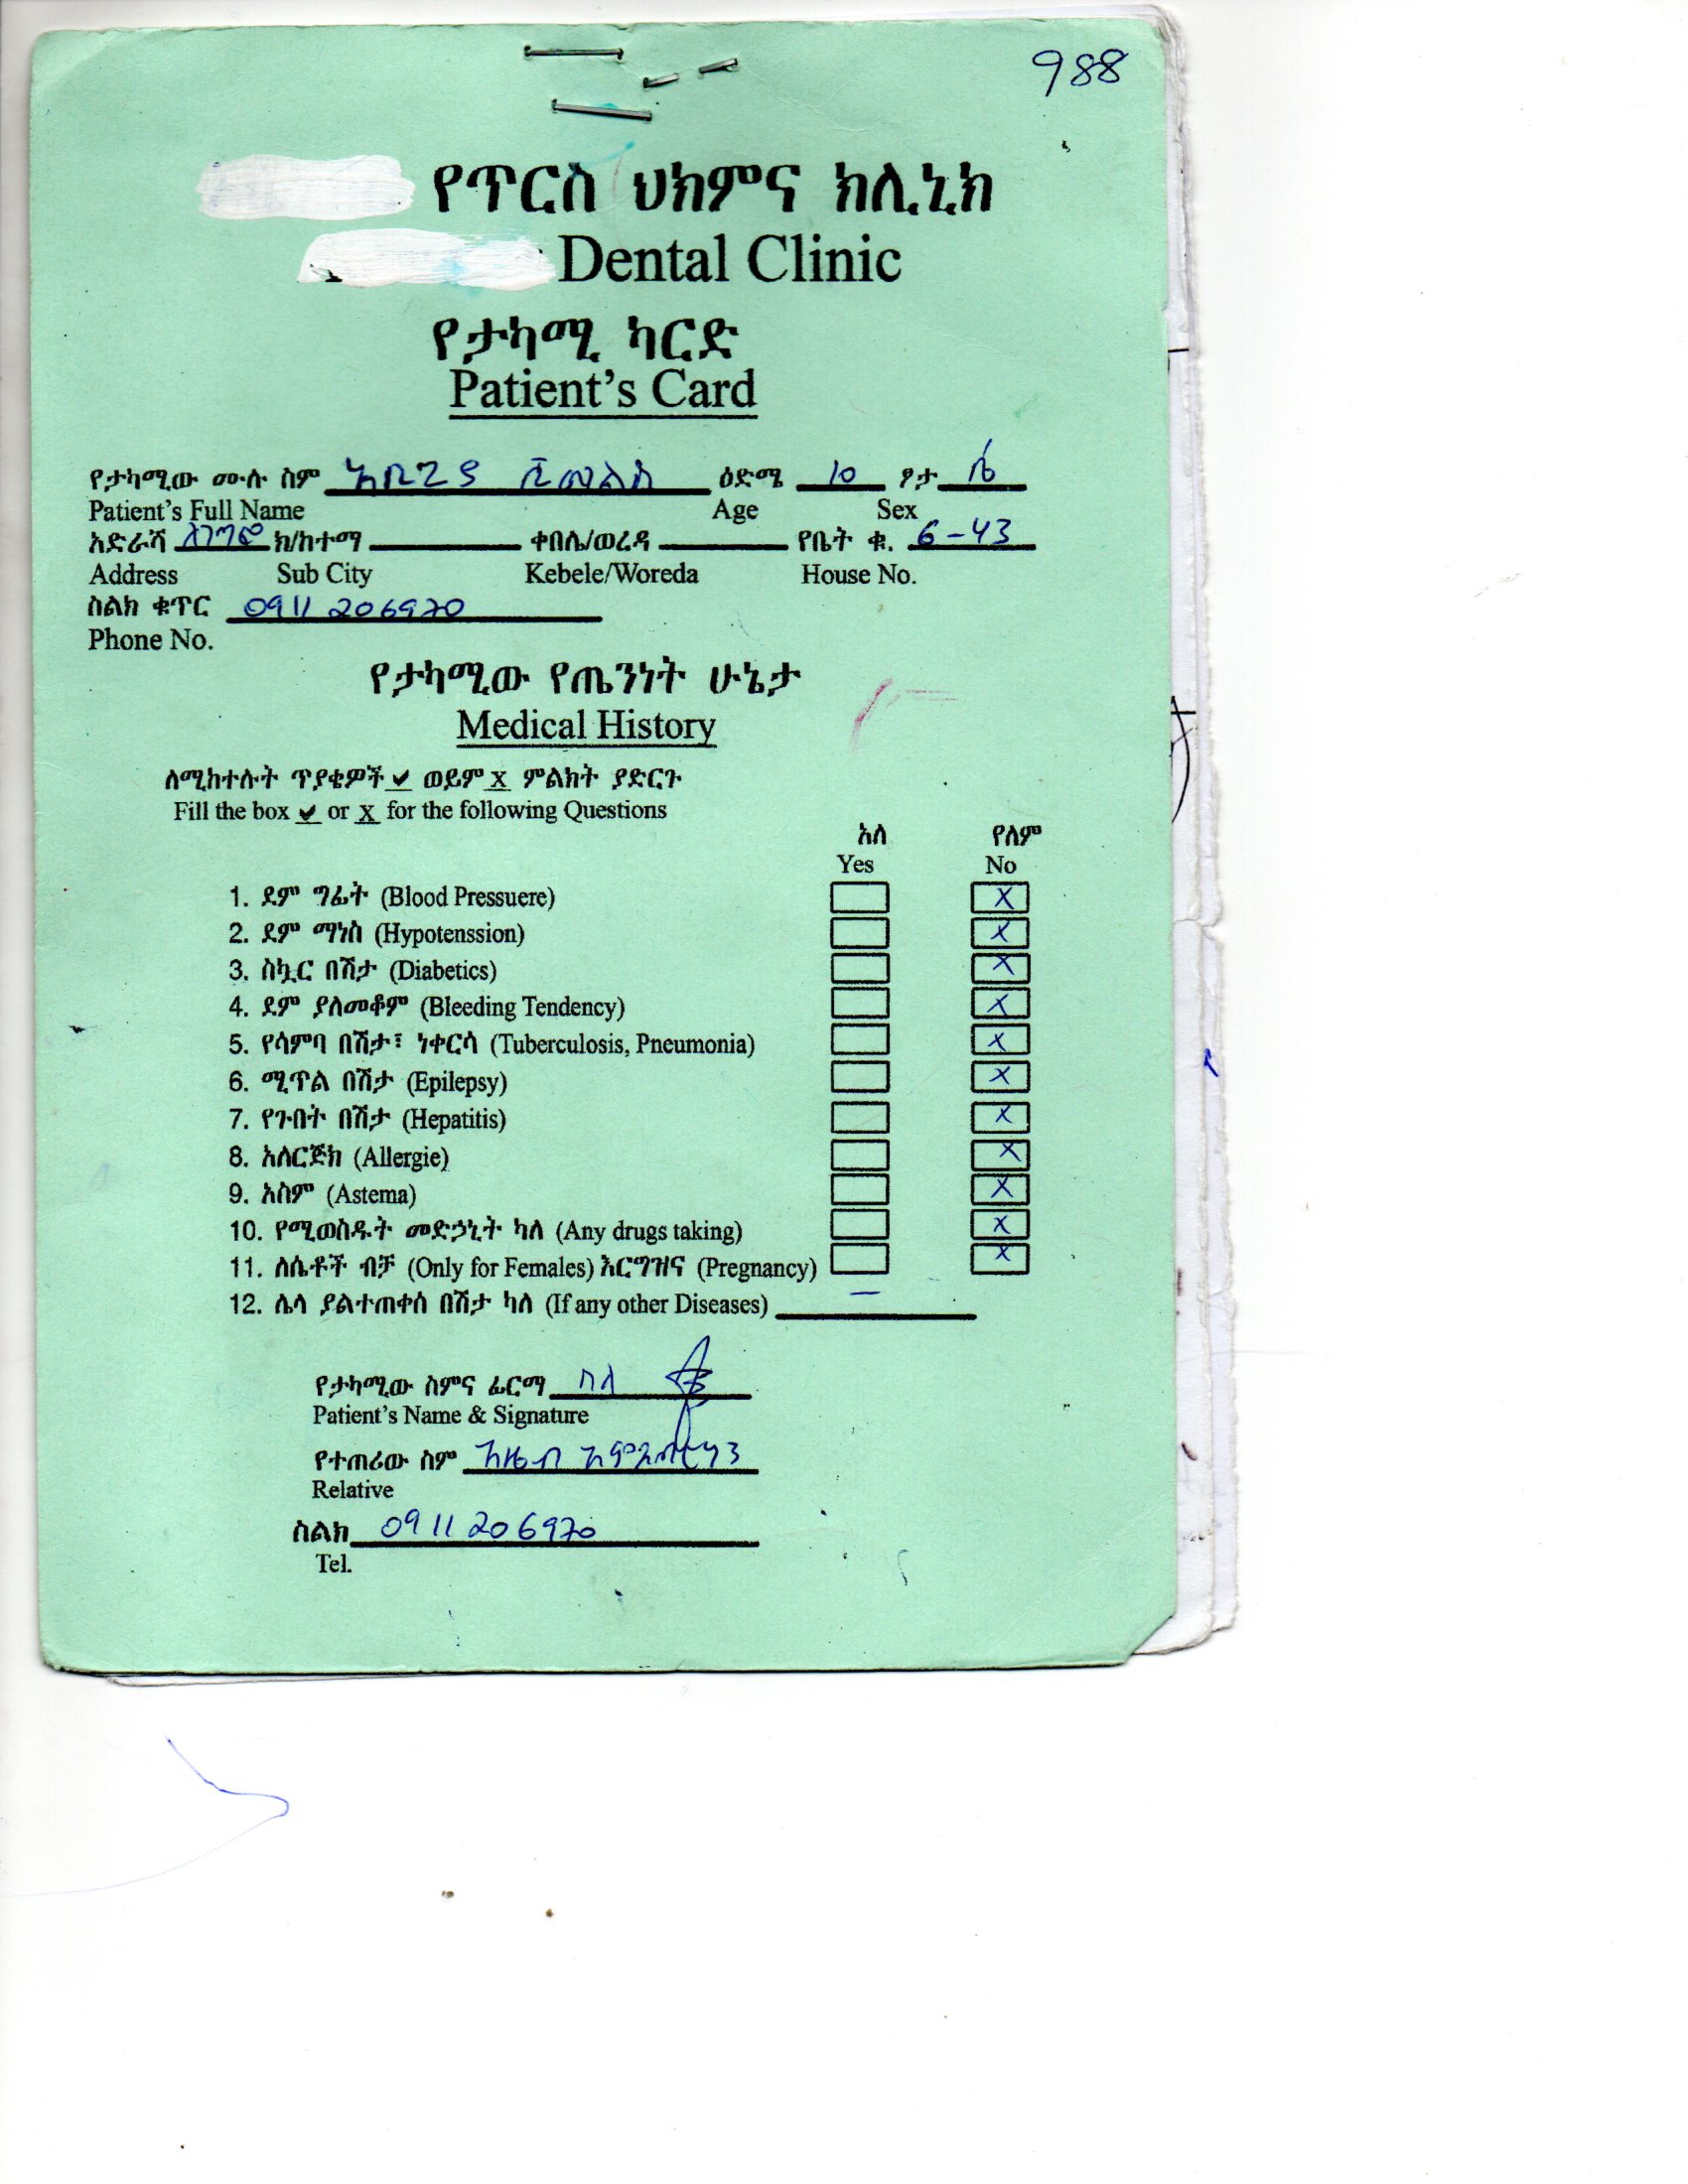 988
የጥርስ ህክምና ክሊኒክ
Dental Clinic
የታካሚ ካርድ
Patient's Card
የታካሚው ሙሉ ስም ዕድሜ 10 ፆታ ሴ
Patient's Full Name Age Sex
አድራሻ ክ/ከተማ ቀበሌ/ወረዳ የቤት ቁ. 6-43
Address Sub City Kebele/Woreda House No.
ስልክ ቁጥር 0911 206970
Phone No.
የታካሚው የጤንነት ሁኔታ
Medical History
ለሚከተሉት ጥያቄዎች ✔ ወይም X ምልክት ያድርጉ
Fill the box ✔ or X for the following Questions
አለ የለም
Yes No
1. ደም ግፊት (Blood Pressuere) X
2. ደም ማነስ (Hypotenssion) X
3. ስኳር በሽታ (Diabetics) X
4. ደም ያለመቆም (Bleeding Tendency) X
5. የሳምባ በሽታ፣ ነቀርሳ (Tuberculosis, Pneumonia) X
6. ሚጥል በሽታ (Epilepsy) X
7. የጉበት በሽታ (Hepatitis) X
8. አለርጅክ (Allergie) X
9. አስም (Astema) X
10. የሚወስዱት መድኃኒት ካለ (Any drugs taking) X
11. ለሴቶች ብቻ (Only for Females) እርግዝና (Pregnancy) X
12. ሌላ ያልተጠቀሰ በሽታ ካለ (If any other Diseases) —
የታካሚው ስምና ፊርማ
Patient's Name & Signature
የተጠሪው ስም አዜብ
Relative
ስልክ 0911 206970
Tel.